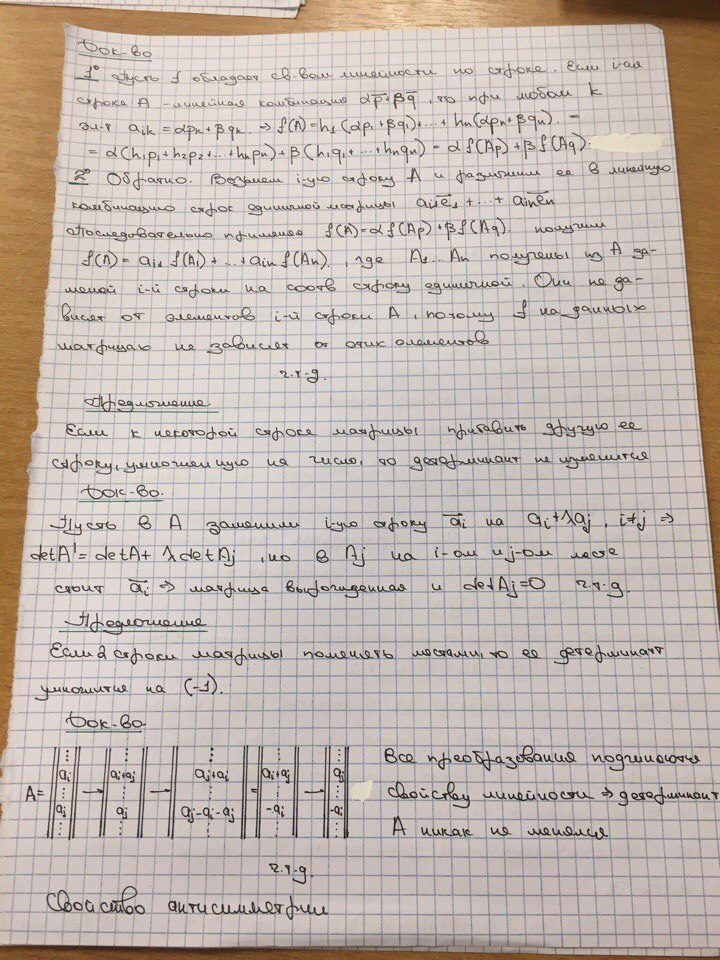 Док-во.
1° Пусть f обладает св-вом линейности по строке. Если i-ая
строка A - линейная комбинация αp̅+βq̅, то при любом k
эл-т aik = αpk+βqk. ⇒ f(A) = h1(αp1+βq1)+...+hn(αpn+βqn). =
= α(h1p1+h2p2+...+hnpn)+β(h1q1+...+hnqn) = αf(Ap)+βf(Aq).
2° Обратно. Возьмем i-ую строку A и разложим ее в линейную
комбинацию строк единичной матрицы ai1e̅1+...+aine̅n
Последовательно применяя f(A)=αf(Ap)+βf(Aq). получим
f(A) = ai1 f(A1)+...+ain f(An), где A1...An получены из A за-
меной i-й строки на соотв строку единичной. Они не за-
висят от элементов i-й строки A, потому f на данных
матрицах не зависят от этих элементов
ч.т.д.
Предложение.
Если к некоторой строке матрицы прибавить другую ее
строку, умноженную на число, то детерминант не изменится
Док-во.
Пусть в A заменили i-ую строку a̅i на ai+λaj, i≠j ⇒
detA'=detA+λdetAj, но в Aj на i-ом и j-ом месте
стоит a̅i ⇒ матрица вырожденная и detAj=0 ч.т.д.
Предложение
Если 2 строки матрицы поменять местами, то ее детерминант
умножится на (-1).
Док-во.
A = ‖⋮ ai ⋮ aj ⋮‖ → ‖⋮ ai+aj ⋮ aj ⋮‖ → ‖⋮ aj+ai ⋮ aj-ai-aj ⋮‖ = ‖⋮ ai+aj ⋮ -ai ⋮‖ → ‖⋮ aj ⋮ -ai ⋮‖
Все преобразования подчиняются
свойству линейности ⇒ детерминант
A никак не менялся
ч.т.д.
Свойство антисимметрии